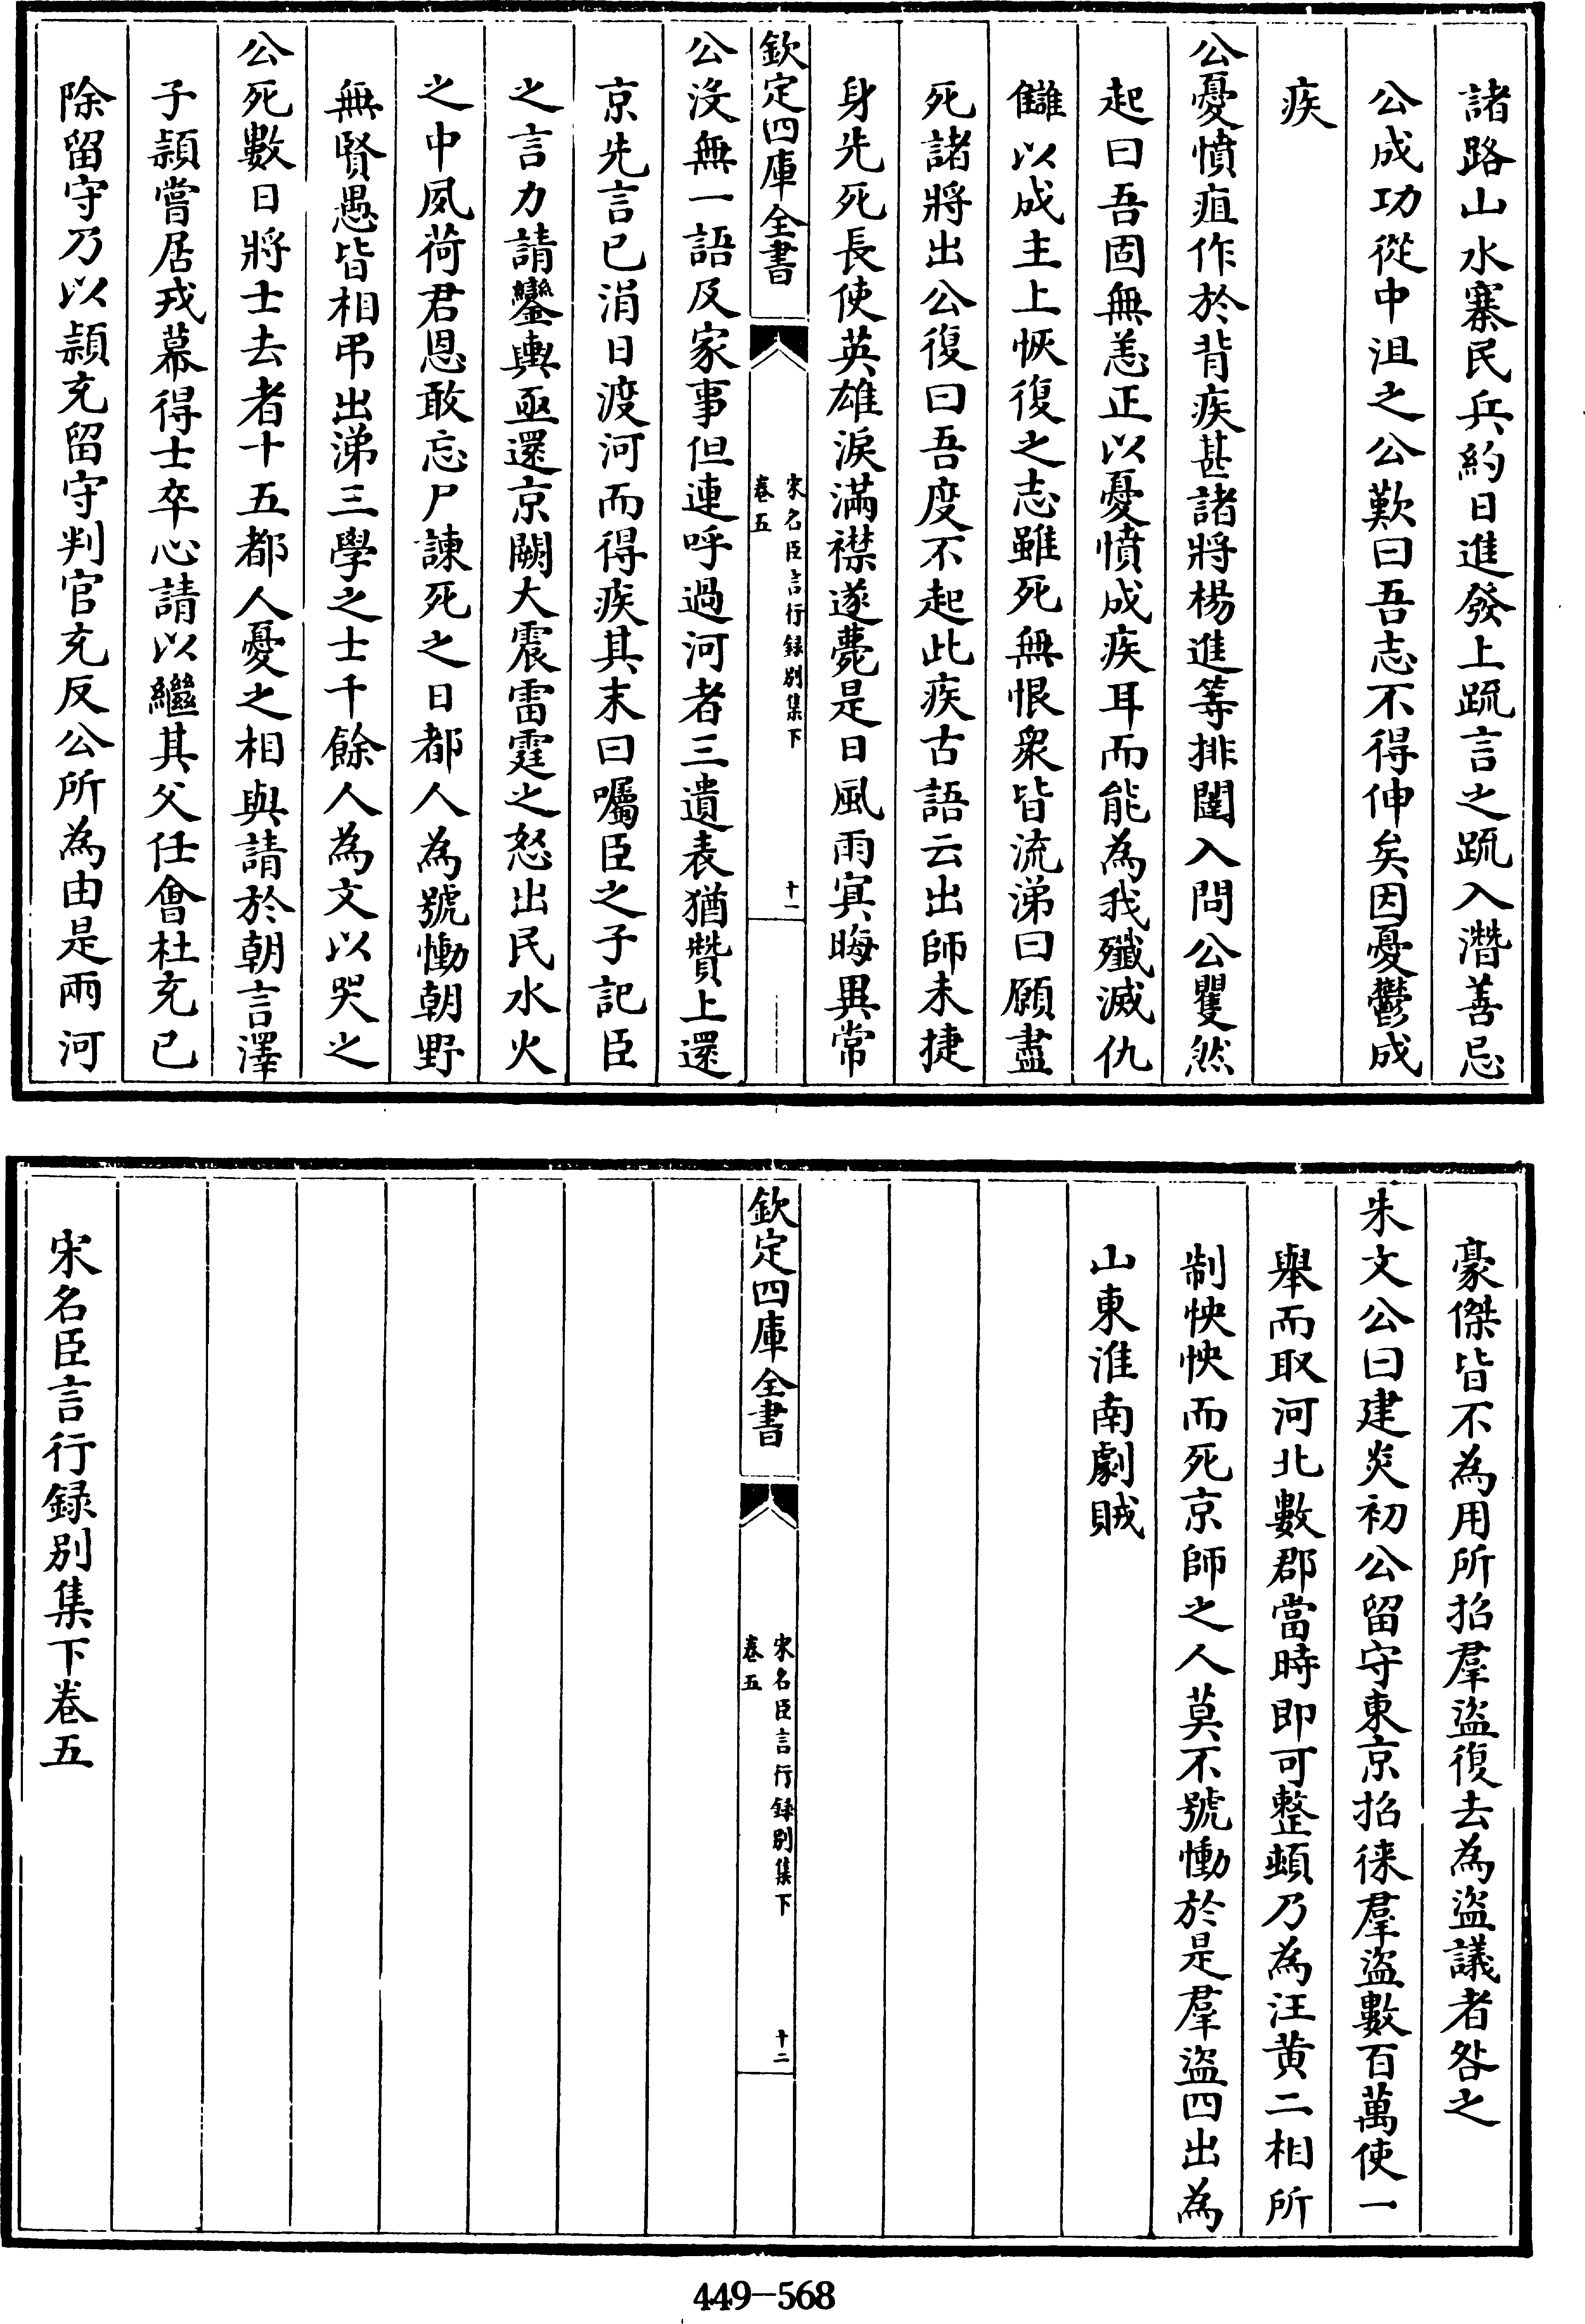 諸路山水寨民兵約日進發上疏言之疏入濳善忌
公成功從中沮之公歎曰吾志不得伸矣因憂鬱成
疾
公憂憤疽作於背疾甚諸將楊進等排闥入問公矍然
起曰吾固無恙正以憂憤成疾耳而能為我殱滅仇
讎以成主上恢復之志雖死無恨衆皆流涕曰願盡
死諸將出公復曰吾度不起此疾古語云出師未捷
身先死長使英雄淚滿襟遂薨是日風雨㝠晦異常
欽定四庫全書
宋名臣言行録别集下
卷五
十一
公沒無一語及家事但連呼過河者三遺表猶贊上還
京先言已涓日渡河而得疾其末曰囑臣之子記臣
之言力請鑾輿亟還京闕大震雷霆之怒出民水火
之中夙荷君恩敢忘尸諫死之日都人為號慟朝野
無賢愚皆相弔出涕三學之士千餘人為文以哭之
公死數日將士去者十五都人憂之相與請於朝言澤
子頴嘗居戎幕得士卒心請以繼其父任會杜充已
除留守乃以頴充留守判官充反公所為由是兩河
豪傑皆不為用所招羣盜復去為盜議者咎之
朱文公曰建炎初公留守東京招徠羣盜數百萬使一
舉而取河北數郡當時即可整頓乃為汪黄二相所
制怏怏而死京師之人莫不號慟於是羣盜四出為
山東淮南劇賊
欽定四庫全書
宋名臣言行録别集下
卷五
十二
宋名臣言行録别集下卷五
449-568